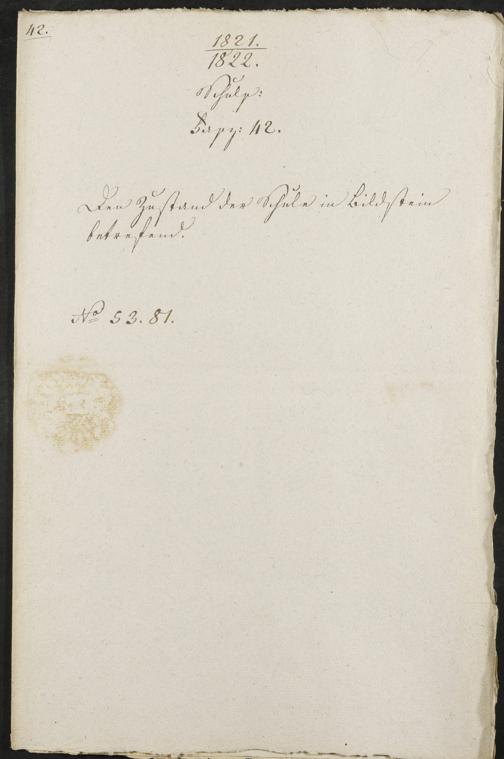 42.
1821.
1822.
Schule:
Fasz: 42.
Den Zustand der Schule in Bildstein
betreffend.
No 53. 81.